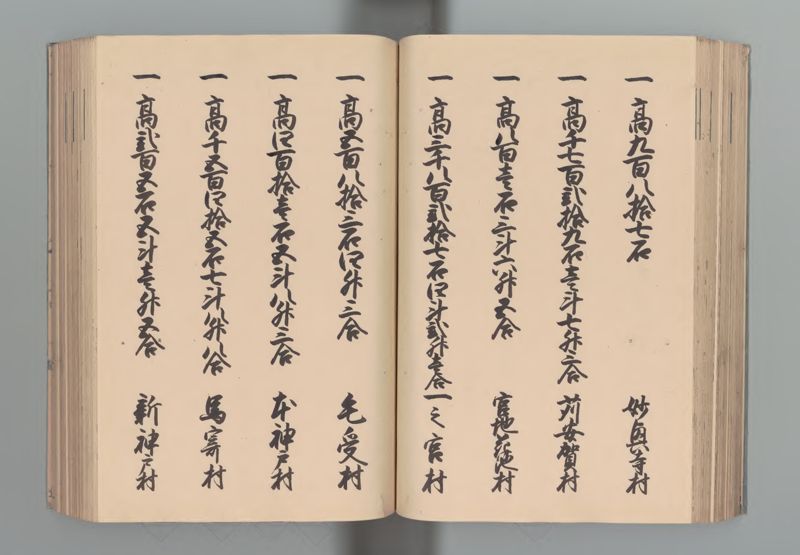 一 高九百八拾七石 妙興寺村
一 高千七百弐拾九石壱斗七升二合 苅安賀村
一 高八百壱石三斗六升五合 宮地花池村
一 高三千八百弐拾七石四斗弐升壱合 一之宮村
一 高五百八拾二石四升三合 毛受村
一 高四百拾壱石五斗八升三合 本神戸村
一 高千五百四拾五石七斗八升八合 馬寄村
一 高弐百五石五斗壱升五合 新神戸村